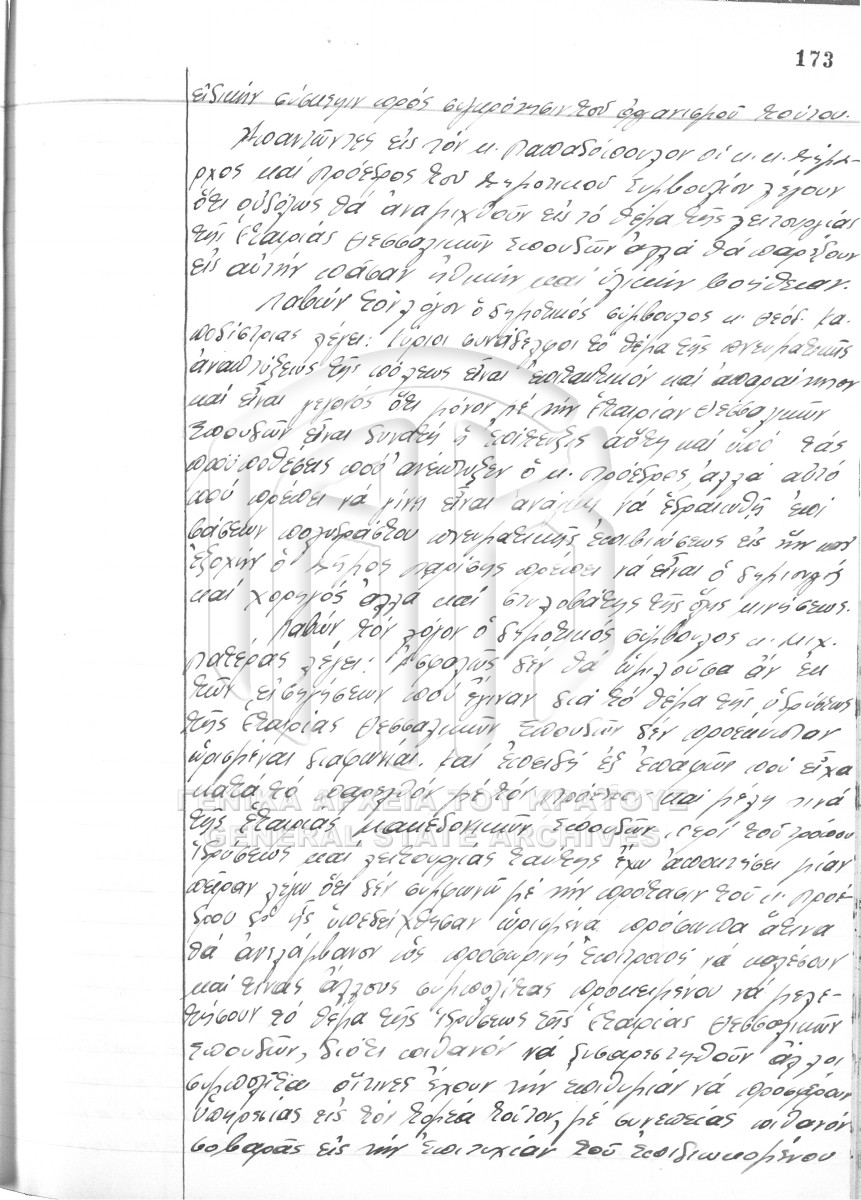 173
εἰδικήν σύσκεψιν πρός συγκρότησιν τοῦ ὀργανισμοῦ τούτου.
Ἀπαντῶντες εἰς τόν κ. Παπαδόπουλον οἱ κ.κ. Δήμα-
ρχος καί Πρόεδρος τοῦ Δημοτικοῦ Συμβουλίου λέγουν
ὅτι οὐδόλως θά ἀναμιχθοῦν εἰς τό θέμα τῆς λειτουργίας
τῆς Ἑταιρίας Θεσσαλικῶν Σπουδῶν ἀλλά θά παρέξουν
εἰς αὐτήν πᾶσαν ἠθικήν καί ὑλικήν βοήθειαν.
Λαβών τόν λόγον ὁ δημοτικός σύμβουλος κ. Θεόδ. Κα-
ποδίστριας λέγει: Κύριοι συνάδελφοι τό θέμα τῆς πνευματικῆς
ἀναπτύξεως τῆς πόλεως εἶναι ἐπιτακτικόν καί ἀπαραίτητον
καί εἶναι γεγονός ὅτι μόνον μέ τήν Ἑταιρίαν Θεσσαλικῶν
Σπουδῶν εἶναι δυνατή ἡ ἐπίτευξις αὕτη καί ὑπό τάς
προϋποθέσεις πού ἀνέπτυξεν ὁ κ. Πρόεδρος, ἀλλά αὐτό
πού πρέπει νά γίνη εἶναι ἀνάγκη νά ἑδραιωθῆ ἐπί
βάσεων πολυδράστου πνευματικῆς ἐπιβιώσεως εἰς ἥν κατ'
ἐξοχήν ὁ Δῆμος Λαρίσης πρέπει νά εἶναι ὁ δημιουργός
καί χορηγός ἀλλά καί στυλοβάτης τῆς ὅλης κινήσεως.
Λαβών τόν λόγον ὁ δημοτικός σύμβουλος κ. Μιχ.
Πατέρας λέγει: Ἀσφαλῶς δέν θά ὡμιλοῦσα ἄν ἐκ
τῶν εἰσηγήσεων πού ἔγιναν διά τό θέμα τῆς ἱδρύσεως
τῆς Ἑταιρίας Θεσσαλικῶν Σπουδῶν δέν προέκυπτον
ὡρισμέναι διαφωνίαι. Καί ἐπειδή ἐξ ἐπαφῶν πού εἶχα
κατά τό παρελθόν μέ τόν Πρόεδρον καί μέλη τινά
τῆς Ἑταιρίας Μακεδονικῶν Σπουδῶν, περί τοῦ τρόπου
ἱδρύσεως καί λειτουργίας ταύτης ἔχω ἀποκτήσει μίαν
πεῖραν λέγω ὅτι δέν συμφωνῶ μέ τήν πρότασιν τοῦ κ. Προέ-
δρου δι' ἧς ὑπεδείχθησαν ὡρισμένα πρόσωπα ἅτινα
θά ἀνελάμβανον ὡς προσωρινή Ἐπιτροπή νά καλέσουν
καί τινας ἄλλους συμπολίτας προκειμένου νά μελε-
τήσουν τό θέμα τῆς ἱδρύσεως τῆς Ἑταιρίας Θεσσαλικῶν
Σπουδῶν, διότι πιθανόν νά δυσαρεστηθοῦν ἄλλοι
συμπολῖται οἵτινες ἔχουν τήν ἐπιθυμίαν νά προσφέρουν
ὑπηρεσίας εἰς τόν τομέα τοῦτον, μέ συνεπείας πιθανόν
σοβαράς εἰς τήν ἐπιτυχίαν τοῦ ἐπιδιωκομένου
ΓΕΝΙΚΑ ΑΡΧΕΙΑ ΤΟΥ ΚΡΑΤΟΥΣ
GENERAL STATE ARCHIVES